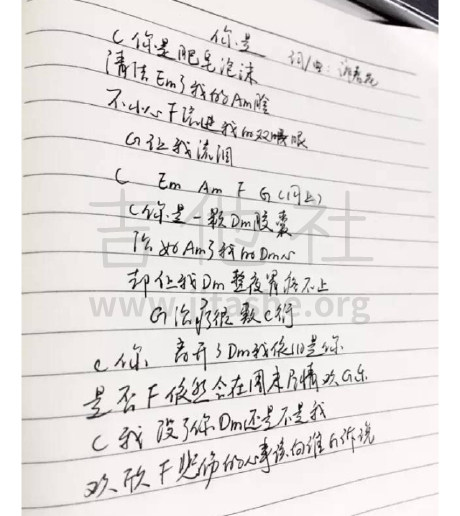 你是
词/曲:
C 你是肥皂泡沫
清洁Em了我的Am脸
不小心 F 流进我的双眼
G让我流泪
C Em Am F G (同上)
C你是一颗Dm胶囊
治好Am了我的Dm心
却让我Dm整夜胃疼不止
G治 很 数 C行
C你 离开了Dm我依旧是你
是否 F 依然会在周末尽情欢G乐
C 我 没了你Dm还是不是我
欢欣 F 悲伤的心事该向谁G诉说
吉他社
www.jitashe.org